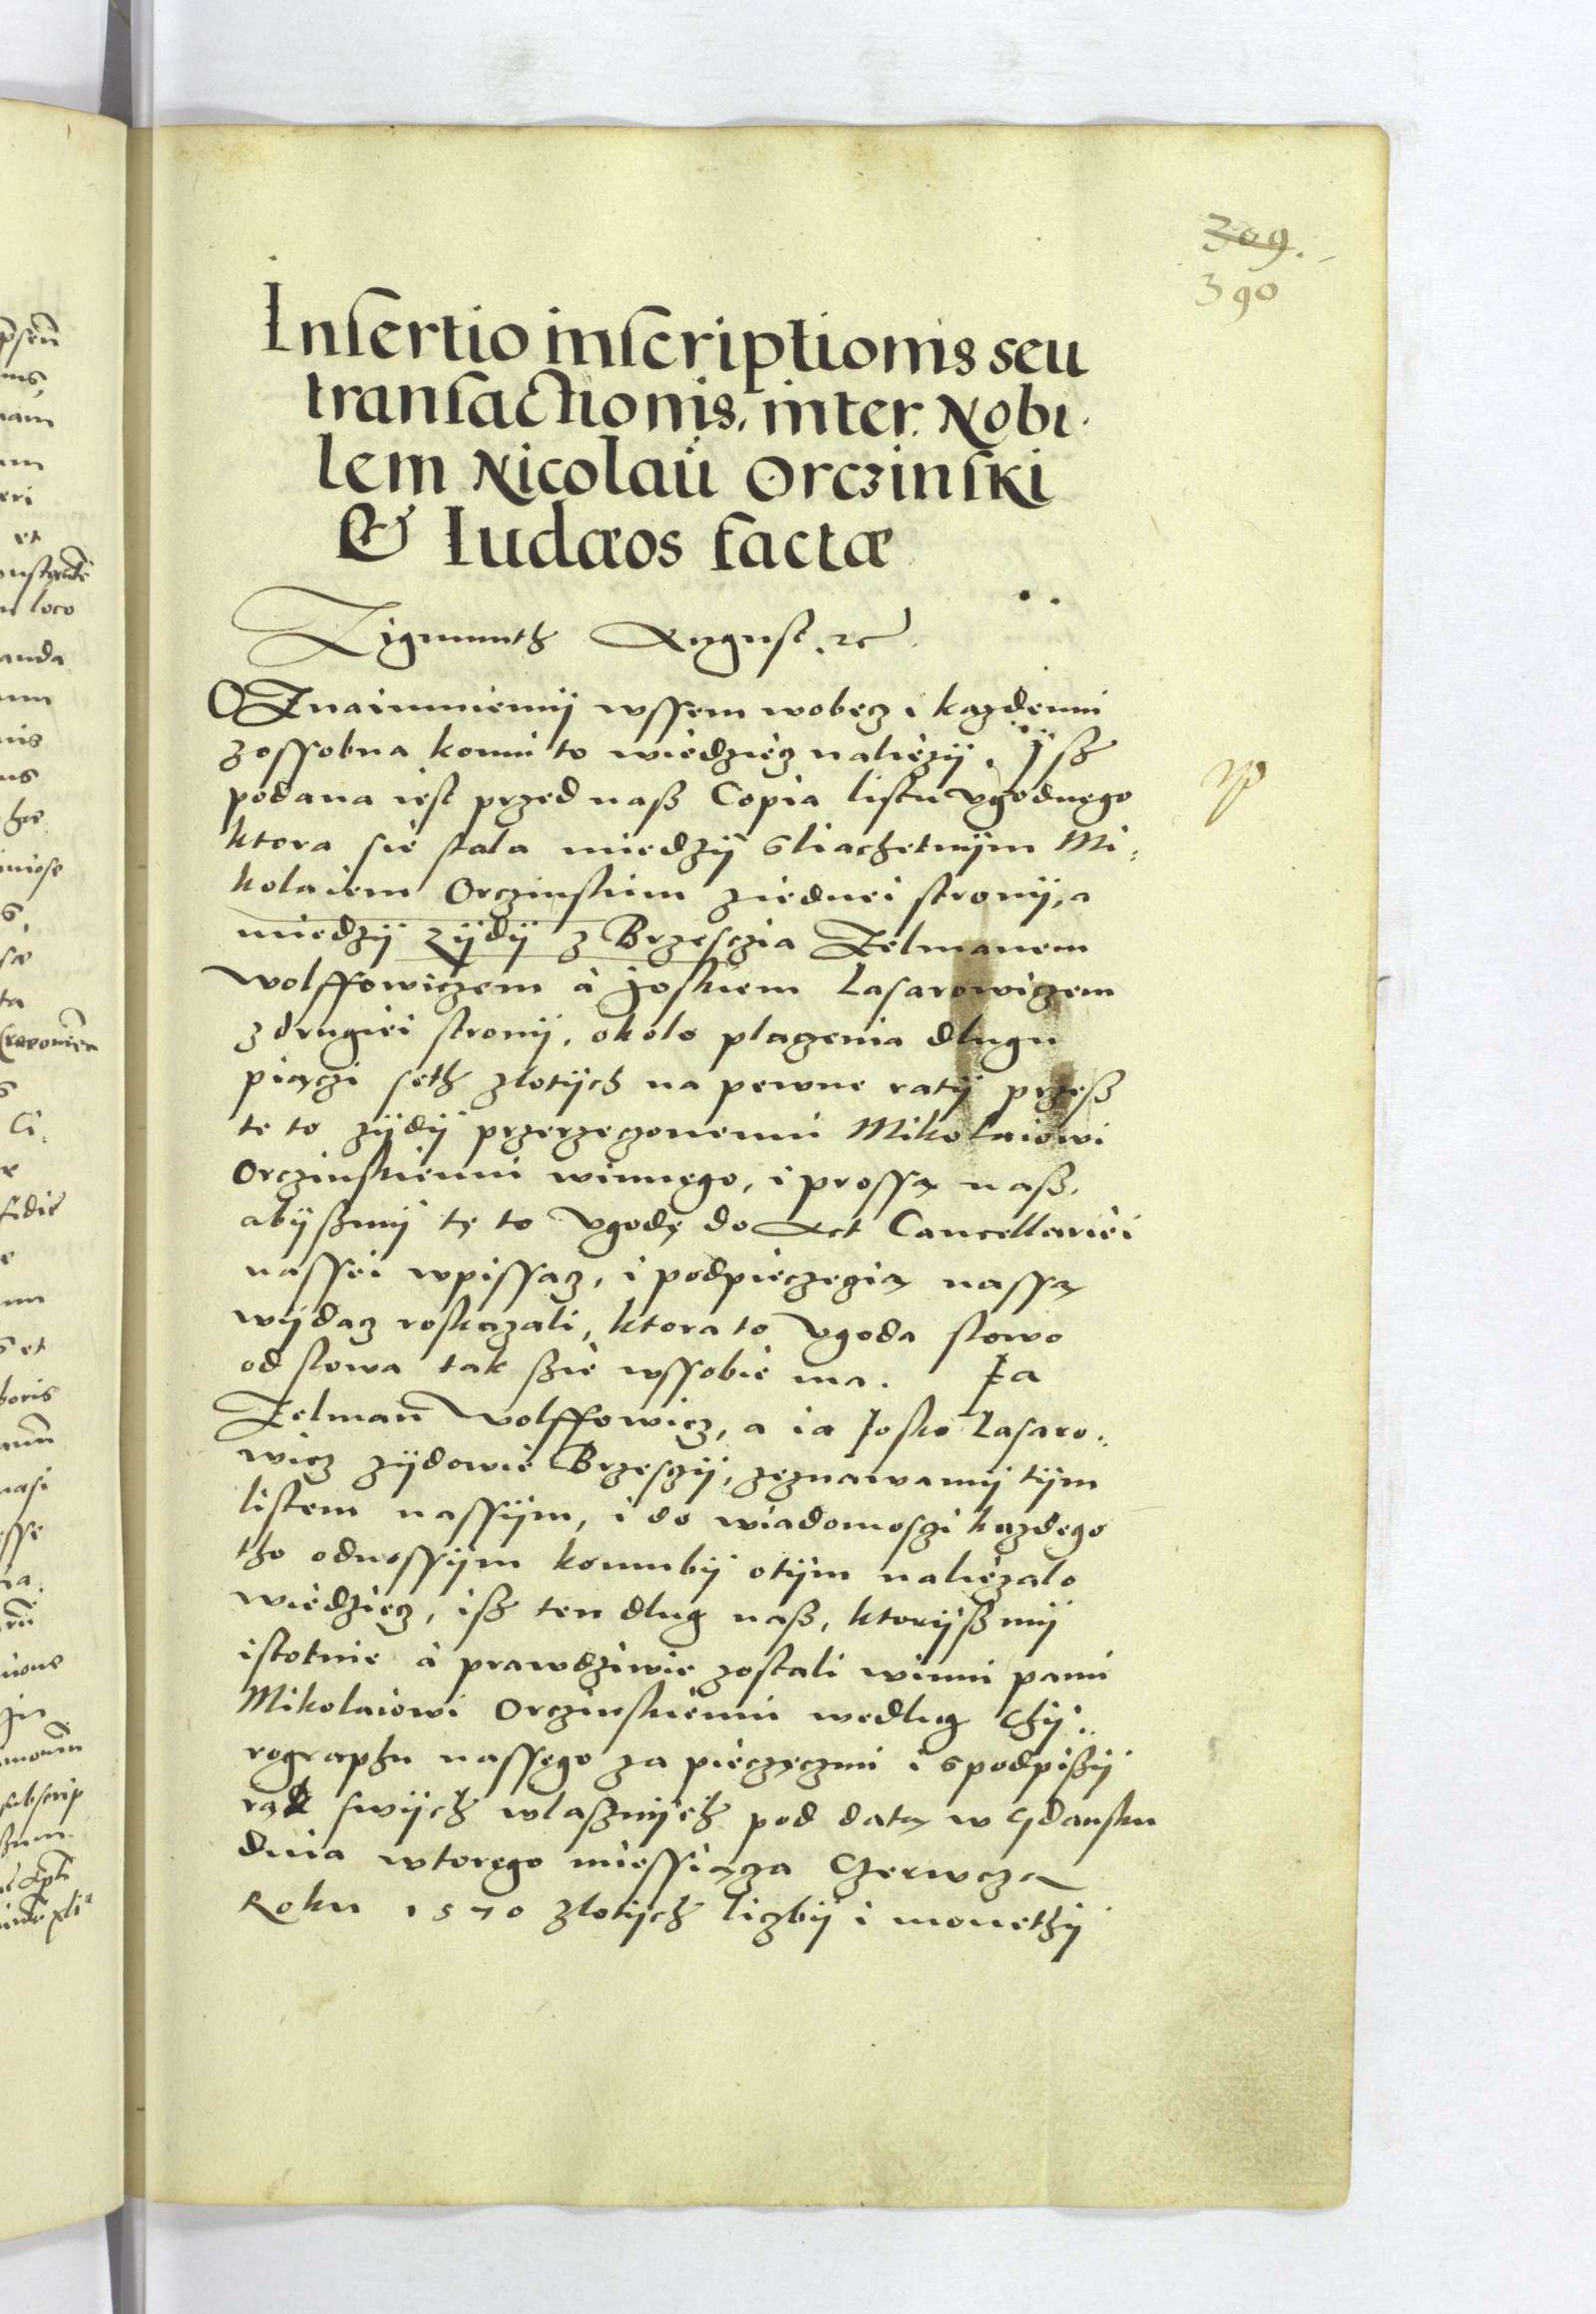 309.
390
Insertio inscriptionis seu
transactionis, inter Nobi
lem Nicolaů Orczinski
& Iudæos factæ
Zigmunth August. etc
OZnaimuiemÿ wssem wobecz i kazdemu
zossobna komu to wiedziecz naliezÿ. Jsz
podana iest przed nasz Copia listu vgodnego
ktora sie stala miedzÿ Sliachetnÿm Mi:
kolaiem Orczinskim ziednei stronÿ, a
miedzÿ zÿdÿ z Brzesczia Zelmanem
wolffowiczem à Joskiem Lasarowiczem
z drugiei stronÿ, okolo placzenia dlugu
piączi seth zlotÿch na pewne ratÿ przesz
te to zÿdÿ przerzeczonemu Mikolaiowi
Orczinskiemu winnego, i prossą nasz,
abÿszmÿ tę to vgodę do Act Cancellariei
nassei wpissacz, i podpieczęcią nassą
wÿdacz roskazali, ktora to vgoda slowo
od slowa tak szie wssobie ma. Ja
Zelman̄ Wolffowicz, a ia Josko Lasaro:
wicz zÿdowie Brzesczÿ, zeznawamÿ tÿm
listem nassÿm, i do wiadomosczi kazdego
tho odnossÿm komubÿ otÿm naliezalo
wiedziecz, isz ten dlug nasz, ktorÿszmÿ
istotnie à prawdziwie zostali winni panu
Mikolaiowi Orczinskiemu wedlug Chÿ:
rographu nassego za pieczęczmi i spodpiszÿ
rąk swÿch wlasznÿch pod datą w Gdansku
dnia wtorego miessiącza Czerwcza
Roku 1570 zlotÿch liczbÿ i monethÿ